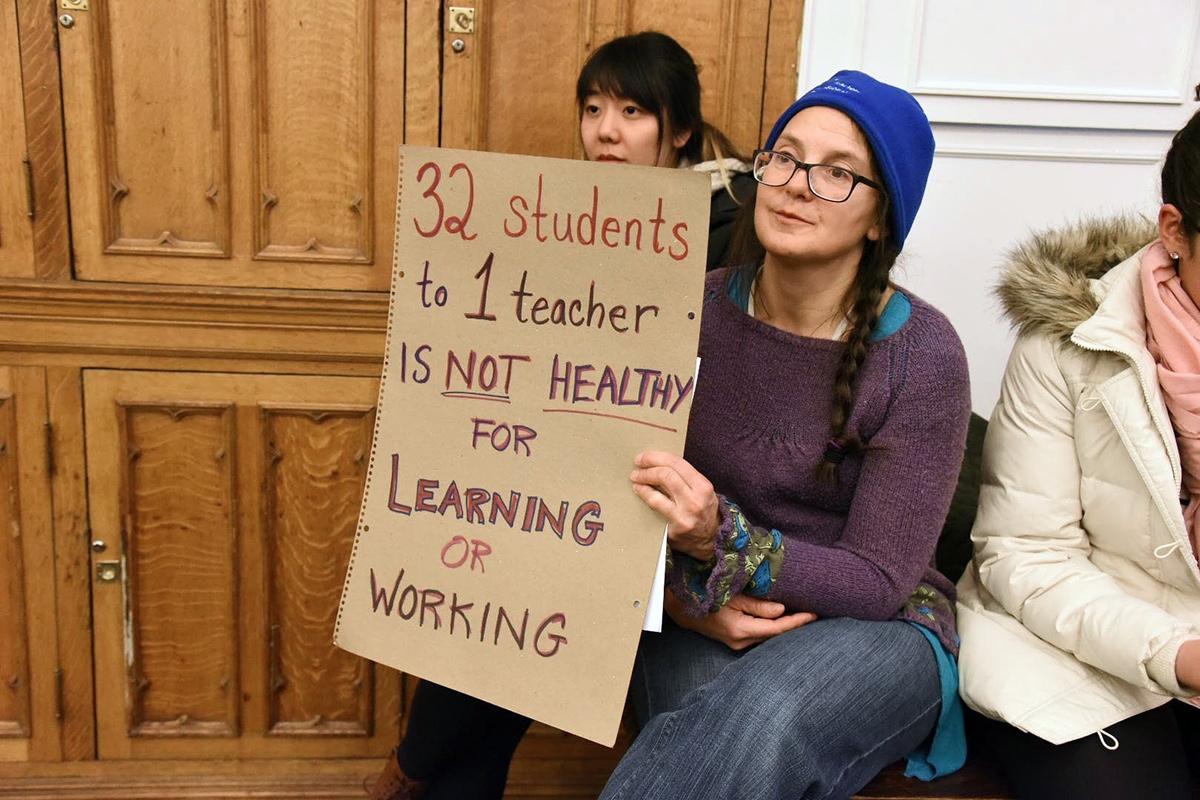 32 students
to 1 teacher .
IS NOT HEALTHY
FOR
LEARNING
OR
WORKING